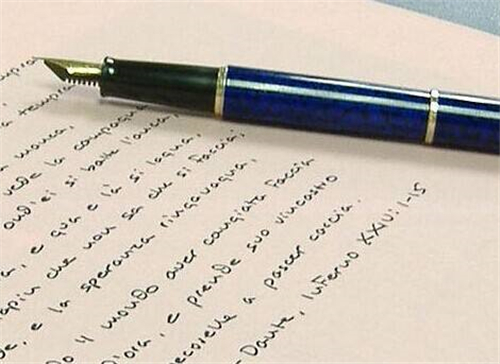 a tempra
manca,
vede la campagna
ond'ei si batte l'anca,
a, e qua e là si lagna,
tapin che non sa che si faccia;
de, e la speranza ringavagna,
do 'l mondo aver cangiata faccia
d'ora, e prende suo vincastro
pecorelle a pascer caccia.
- Dante, Inferno XXIV: 1-15